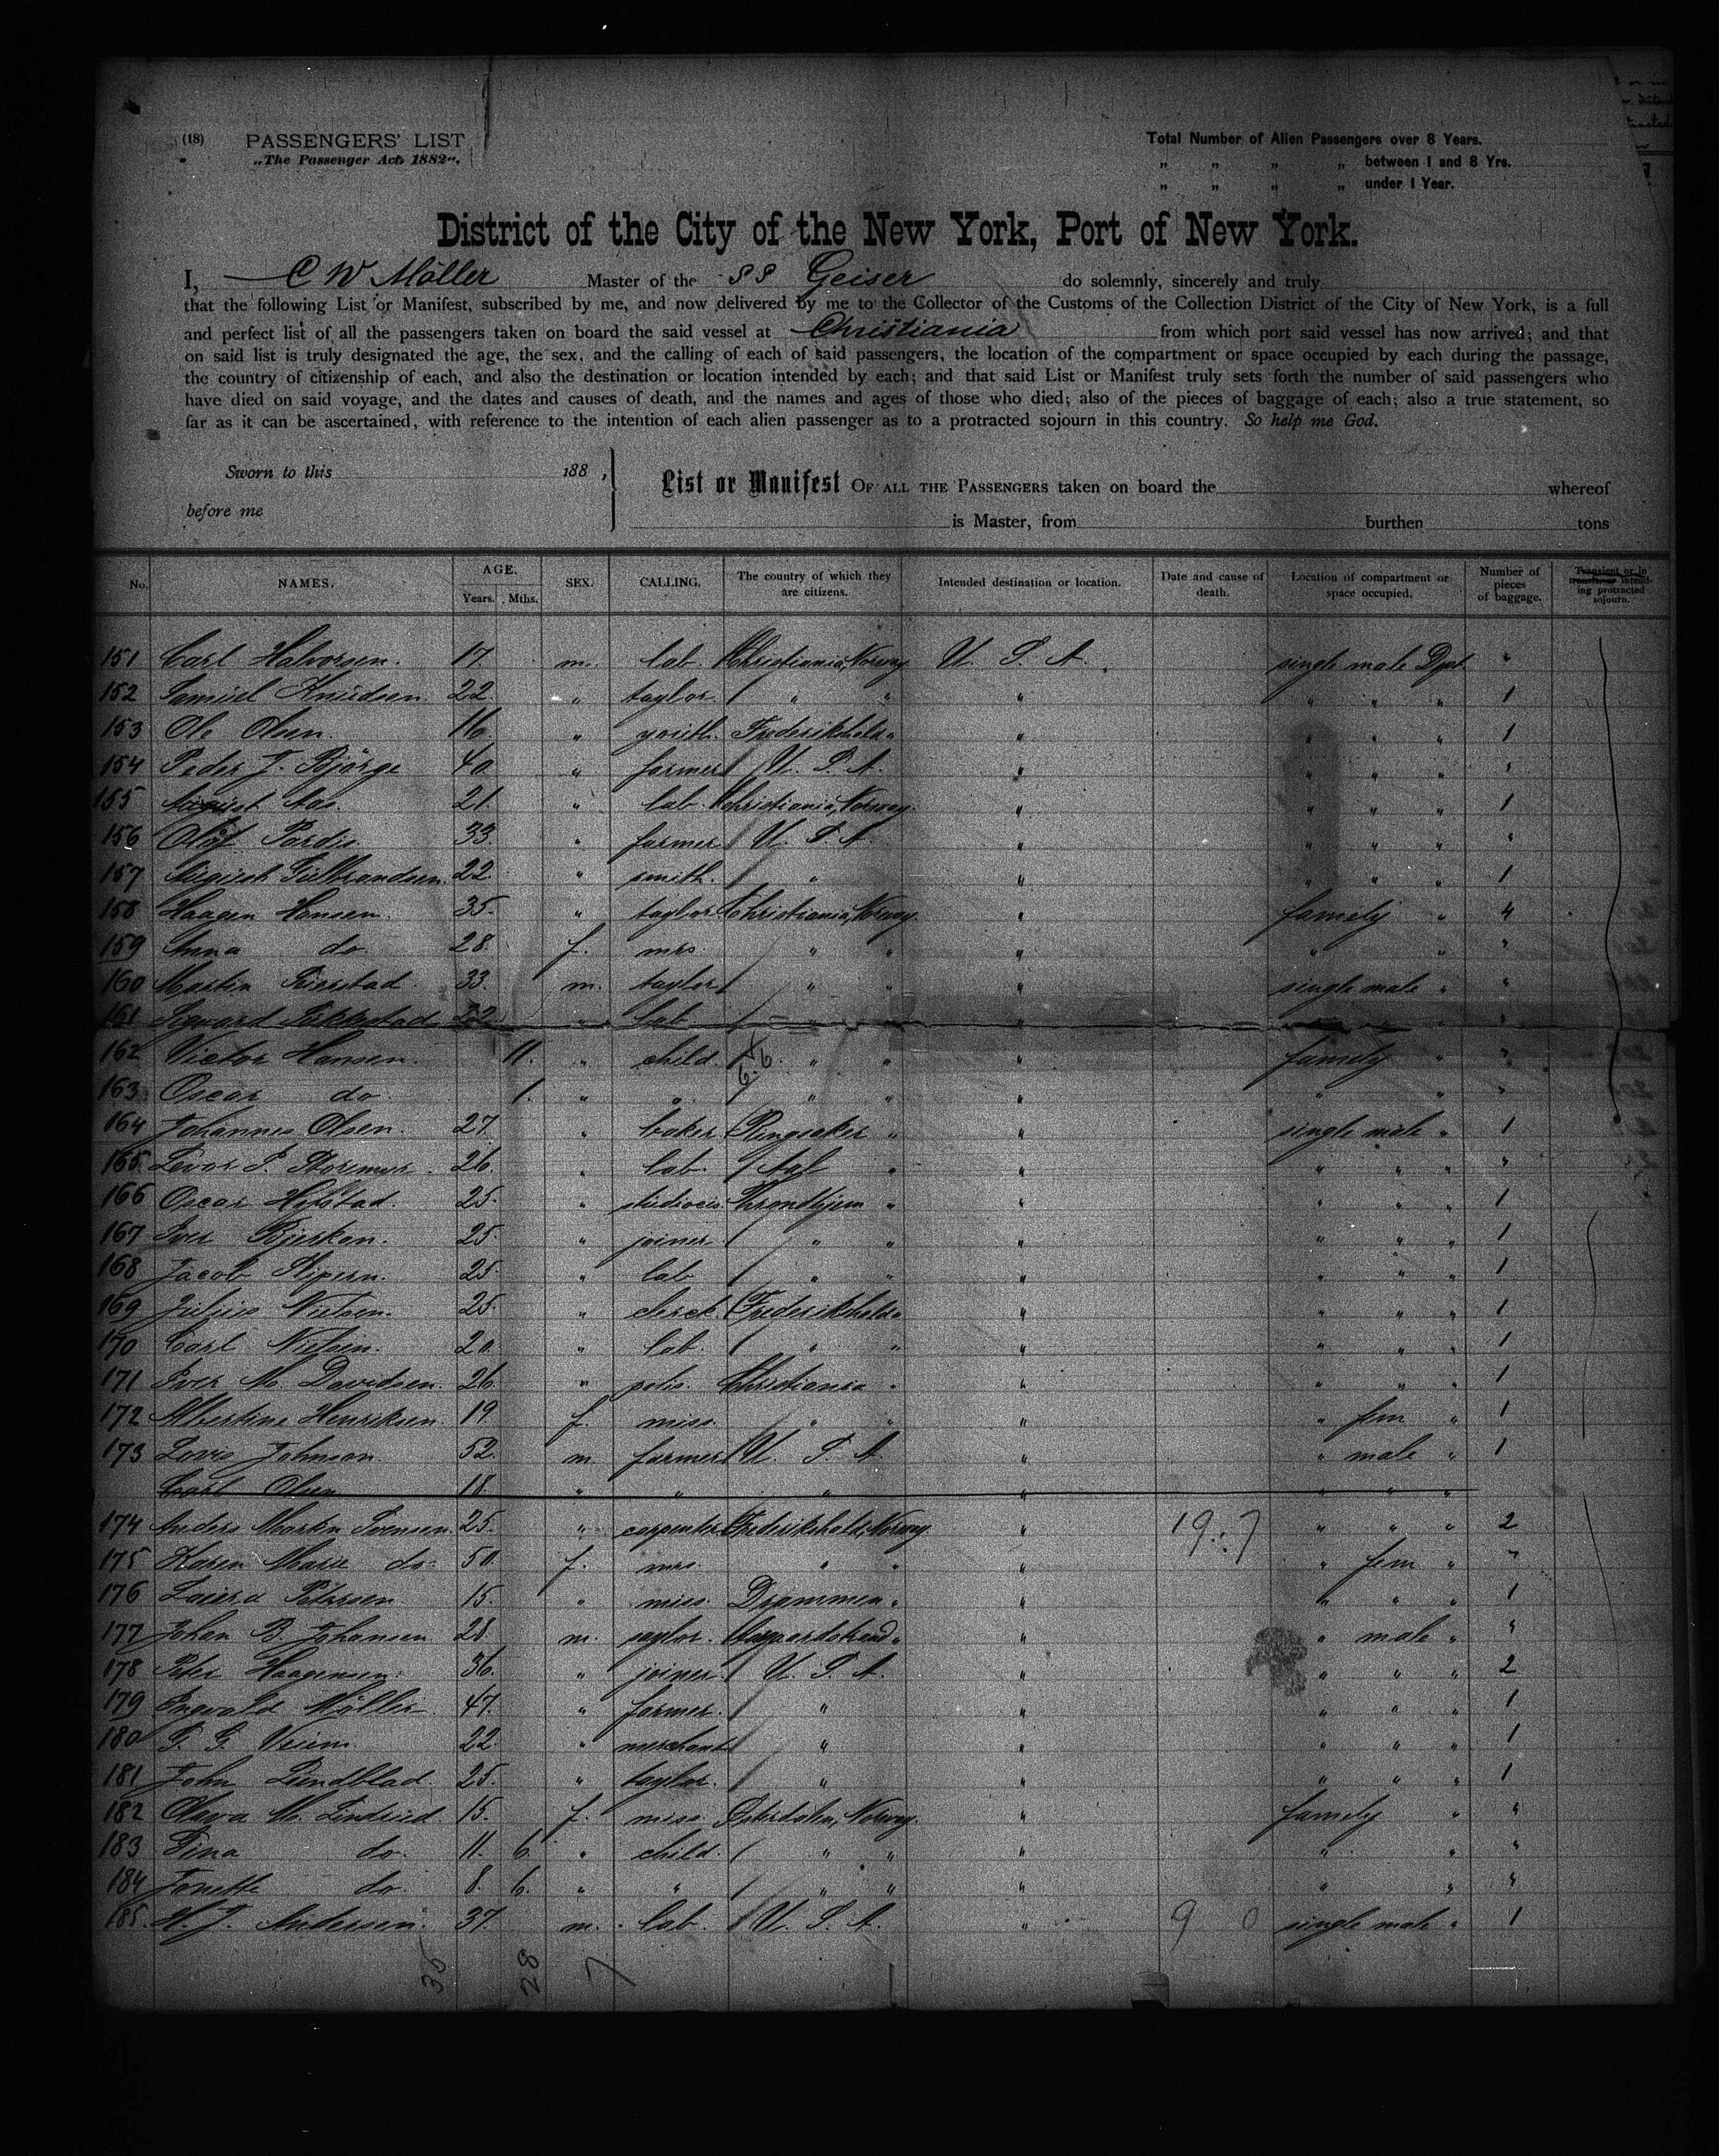 (18) PASSENGERS' LIST
„The Passenger Act, 1882".
Total Number of Alien Passengers over 8 Years.
„ „ „ „ between 1 and 8 Yrs.
„ „ „ „ under 1 Year.
District of the City of the New York, Port of New York.
I, C W Möller Master of the SS Geiser do solemnly, sincerely and truly
that the following List or Manifest, subscribed by me, and now delivered by me to the Collector of the Customs of the Collection District of the City of New York, is a full
and perfect list of all the passengers taken on board the said vessel at Christiania from which port said vessel has now arrived; and that
on said list is truly designated the age, the sex, and the calling of each of said passengers, the location of the compartment or space occupied by each during the passage,
the country of citizenship of each, and also the destination or location intended by each; and that said List or Manifest truly sets forth the number of said passengers who
have died on said voyage, and the dates and causes of death, and the names and ages of those who died; also of the pieces of baggage of each; also a true statement, so
far as it can be ascertained, with reference to the intention of each alien passenger as to a protracted sojourn in this country. So help me God.
Sworn to this 188 ,
before me
List or Manifest OF ALL THE PASSENGERS taken on board the whereof
is Master, from burthen tons
No. NAMES. AGE. Years. Mths. SEX. CALLING. The country of which they are citizens. Intended destination or location. Date and cause of death. Location of compartment or space occupied. Number of pieces of baggage. Transient or in transit, or intending protracted sojourn.
151 Carl Halvorsen. 17. m. lab. Christiania, Norway U. S. A. single male Dpt. "
152 Samuel Knudsen. 22. " taylor " " " " " " 1
153 Ole Olsen. 16. " youth. Frederikshald " " " " " 1
154 Peder J. Björge 40. " farmer U. S. A. " " " " "
155 August Aas. 21. " lab. Christiania, Norway. " " " " 1
156 Olaf 33. " farmer U. S. A. " " " " "
157 August Gulbrandsen. 22. " smith. " " " " " 1
158 Haagen Hansen. 35. " taylor Christiania, Norway. " family " 4
159 Anna do. 28. f. mrs. " " " " " "
160 Martin 33. m. taylor " " " single male " "
161 22. " lab. " " " " "
162 Victor Hansen. 11. " child. " " " family " "
163 Oscar do. 1. " " " " " " " "
164 Johannes Olsen. 27. " baker Ringsaker " " single male " 1
165 26. " lab. Aal " " " " " "
166 Oscar Hofstad. 25. " Throndhjem " " " " " 1
167 Iver 25. " joiner " " " " " " 1
168 Jacob 25. " lab " " " " " 1
169 Julius Nielsen. 25. " clerck. Frederikshald " " " " " 1
170 Carl Nielsen. 20. " lab. " " " " " " 1
171 Iver M. Davidsen. 26. " Christiania " " " " " 1
172 Albertine Henriksen 19. f. miss. " " " " fem " 1
173 Lovis Johnson. 52. m. farmer U. S. A. " " male " 1
Carl Olsen 18. " " " " " " "
174 Anders Martin Svensen. 25. " carpenter Frederikshald, Norway. " 19 7 " " " 2
175 Karen Marie do. 50. f. mrs. " " " " fem " "
176 Petersen 15. " miss. Drammen " " " " " 1
177 Johan B. Johansen 28. m. saylor. Aasgaardstrand " " " male " "
178 Peter Haagensen. 36. " joiner. U. S. A. " " " " 2
179 Ingvald Möller 47. " farmer. " " " " " 1
180 22. " merchant " " " " " 1
181 John Lundblad. 25. " taylor. " " " " " 1
182 Olava M. 15. f. miss. Österdalen, Norway. " family " "
183 Tina do. 11. 6. " child. " " " " " "
184 Jonette do. 8. 6. " " " " " " " "
185. Andersen. 37. m. lab. U. S. A. " 9 0 single male " 1
35 28 7